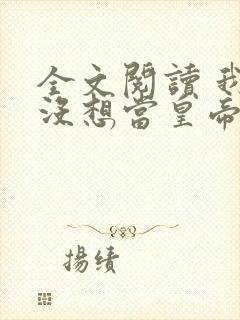 全文閱讀 我
沒想當皇帝
揚績